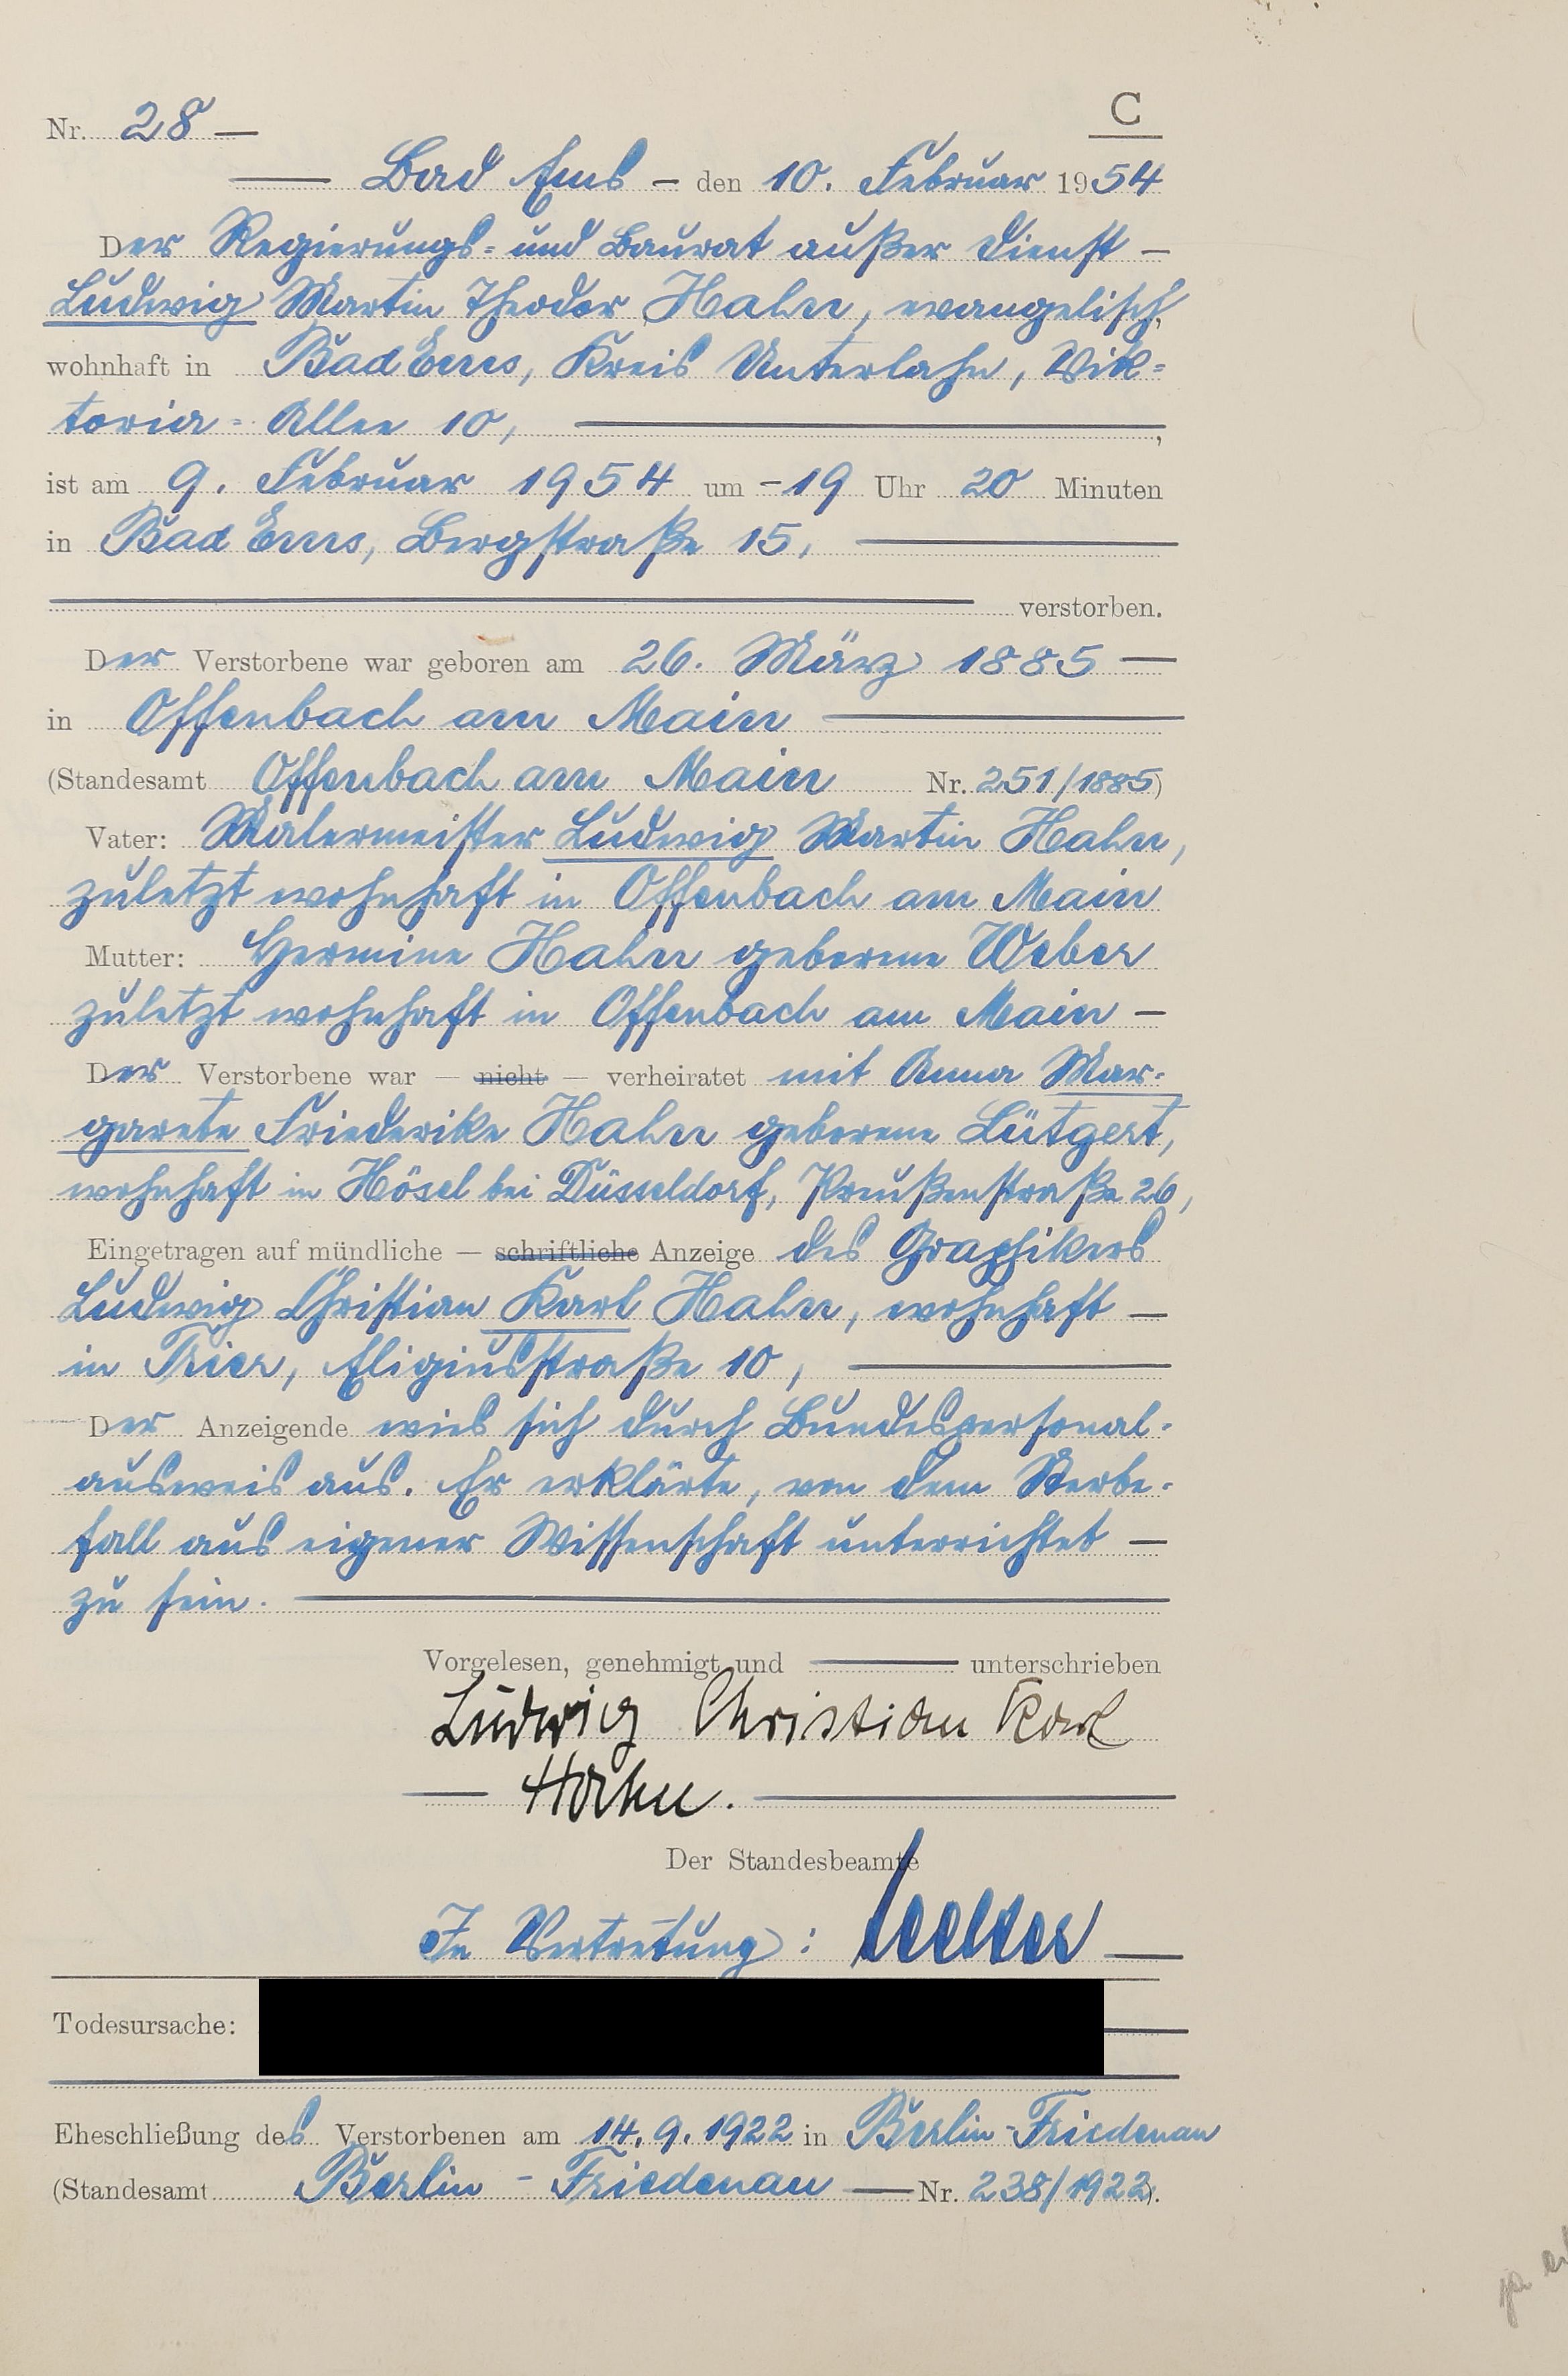 C
Nr. 28 —
Bad Ems – den 10. Februar 1954
Der Regierungs= und Baurat außer Dienst –
Ludwig Martin Theodor Hahn, evangelisch,
wohnhaft in Bad Ems, Kreis Unterlahn, Vik=
toria=Allee 10,
ist am 9. Februar 1954 um – 19 Uhr 20 Minuten
in Bad Ems, Bergstraße 15,
verstorben.
Der Verstorbene war geboren am 26. März 1885 —
in Offenbach am Main
(Standesamt Offenbach am Main Nr. 251/1885)
Vater: Malermeister Ludwig Martin Hahn,
zuletzt wohnhaft in Offenbach am Main
Mutter: Hermine Hahn geborene Weber
zuletzt wohnhaft in Offenbach am Main –
Der Verstorbene war — nicht — verheiratet mit Anna Mar=
garete Friederike Hahn geborene Lütgert,
wohnhaft in Hösel bei Düsseldorf, Preußenstraße 26,
Eingetragen auf mündliche — schriftliche Anzeige des Graphikers
Ludwig Christian Karl Hahn, wohnhaft —
in Trier, Eligiusstraße 10,
Der Anzeigende wies sich durch Bundespersonal=
ausweis aus. Er erklärte, von dem Sterbe=
fall aus eigener Wissenschaft unterrichtet —
zu sein.
Vorgelesen, genehmigt und — unterschrieben
Ludwig Christian Karl
— Hahn.
Der Standesbeamte
In Vertretung:
Todesursache:
Eheschließung des Verstorbenen am 14.9.1922 in Berlin-Friedenau
(Standesamt Berlin - Friedenau — Nr. 238/1922).